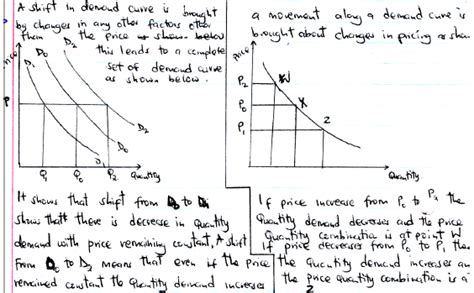 A shift in demand curve is brought
by changes in any other factors other
than the price as shown below
this leads to a complete
set of demand curve
as shown below.
D1 D0 D2
P
D2
D0
D1
Q1 Q0 P2 Quantity
It shows that shift from D0 to D1
shows that there is decrease in Quantity
demand with price remaining constant, A shift
From D0 to D2 means that even if the price
remained constant the Quantity demand increases
a movement along a demand curve is
brought about changes in pricing as
Price
P2 W
P0 X
P1 Z
Quantity
If price increase from P0 to P2 the
Quantity demand decreases and the price
Quantity combination is at point W
If price decreases from P0 to P1, the
the Quantity demand increases an
the price quantity combination is a
Z